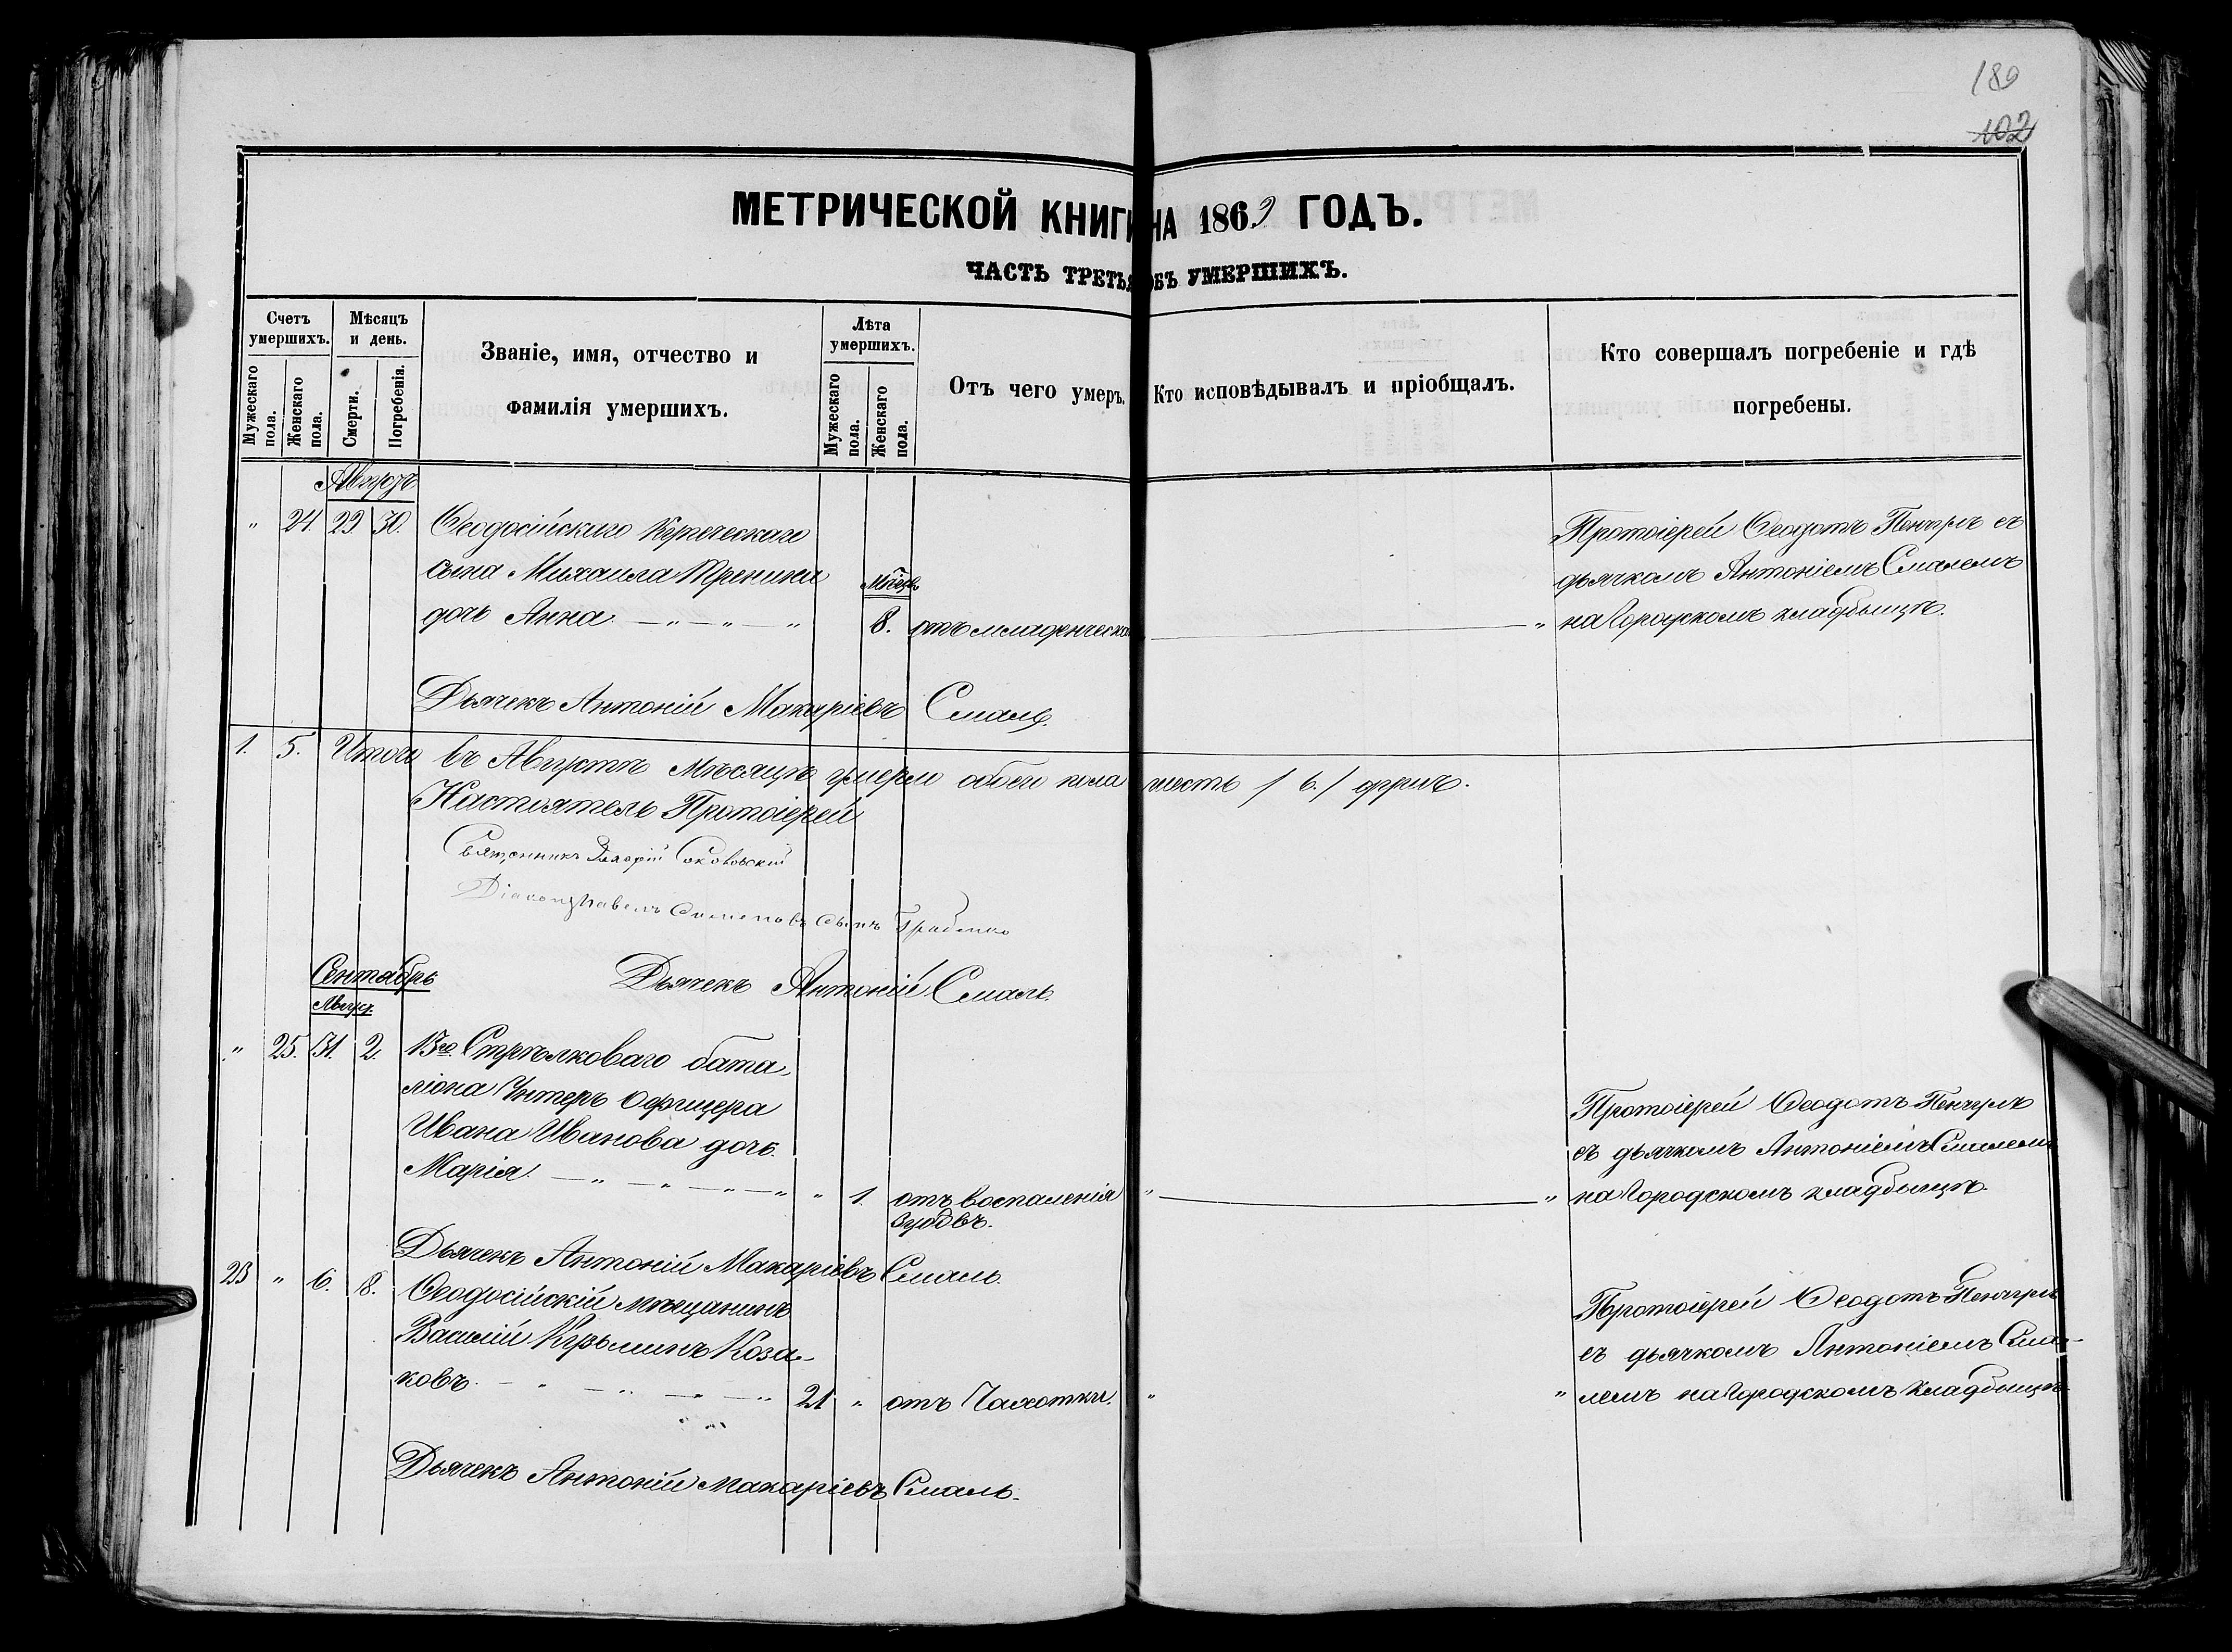 180
102
МЕТРИЧЕСКОЙ КНИГИ НА 1869 ГОДЪ.
ЧАСТЬ ТРЕТЬЯ ОБЪ УМЕРШИХЪ.
Счетъ умершихъ.
Мужескаго пола.
Женскаго пола.
Мѣсяцъ и день.
Смерти.
Погребенія.
Званіе, имя, отчество и
фамилія умершихъ.
Лѣта умершихъ.
Мужескаго пола.
Женскаго пола.
Отъ чего умеръ.
Кто исповѣдывалъ и пріобщалъ.
Кто совершалъ погребеніе и гдѣ
погребены.
Августъ
" 24. 29. 30. Ѳеодосійскаго Купеческаго
сына Михаила
дочь Анна — " — " — " 8. отъ младенческа
Протоіерей Ѳеодотъ съ
дьячкомъ Антоніемъ Смалемъ
" на Городскомъ кладбищѣ.
Дьячекъ Антоній Макаріевъ Смаль.
1. 5. Итого въ Августѣ мѣсяцѣ умерло обоего пола шесть / 6. / душъ.
Настоятель Протоіерей
Священникъ
Діаконъ Павелъ сынъ
Дьячекъ Антоній Смаль.
Сентябрь
Август
" 25. 31. 2. 13го Стрѣлковаго бата-
ліона Унтеръ Офицера
Ивана Иванова дочь
Марія. — " — " — " — " " 1. отъ воспаленія " "
зубовъ.
Протоіерей Ѳеодотъ
съ дьячкомъ Антоніемъ Смалемъ
на Городскомъ кладбищѣ.
Дьячекъ Антоній Макаріевъ Смаль.
23 " 6. 8. Ѳеодосійскій мѣщанинъ
Василій Кузьминъ Коза-
ковъ. — " — " — " — " 21 " отъ Чахотки. " "
Протоіерей Ѳеодотъ
съ дьячкомъ Антоніемъ Сма-
лемъ на Городскомъ кладбищѣ.
Дьячекъ Антоній Макаріевъ Смаль.